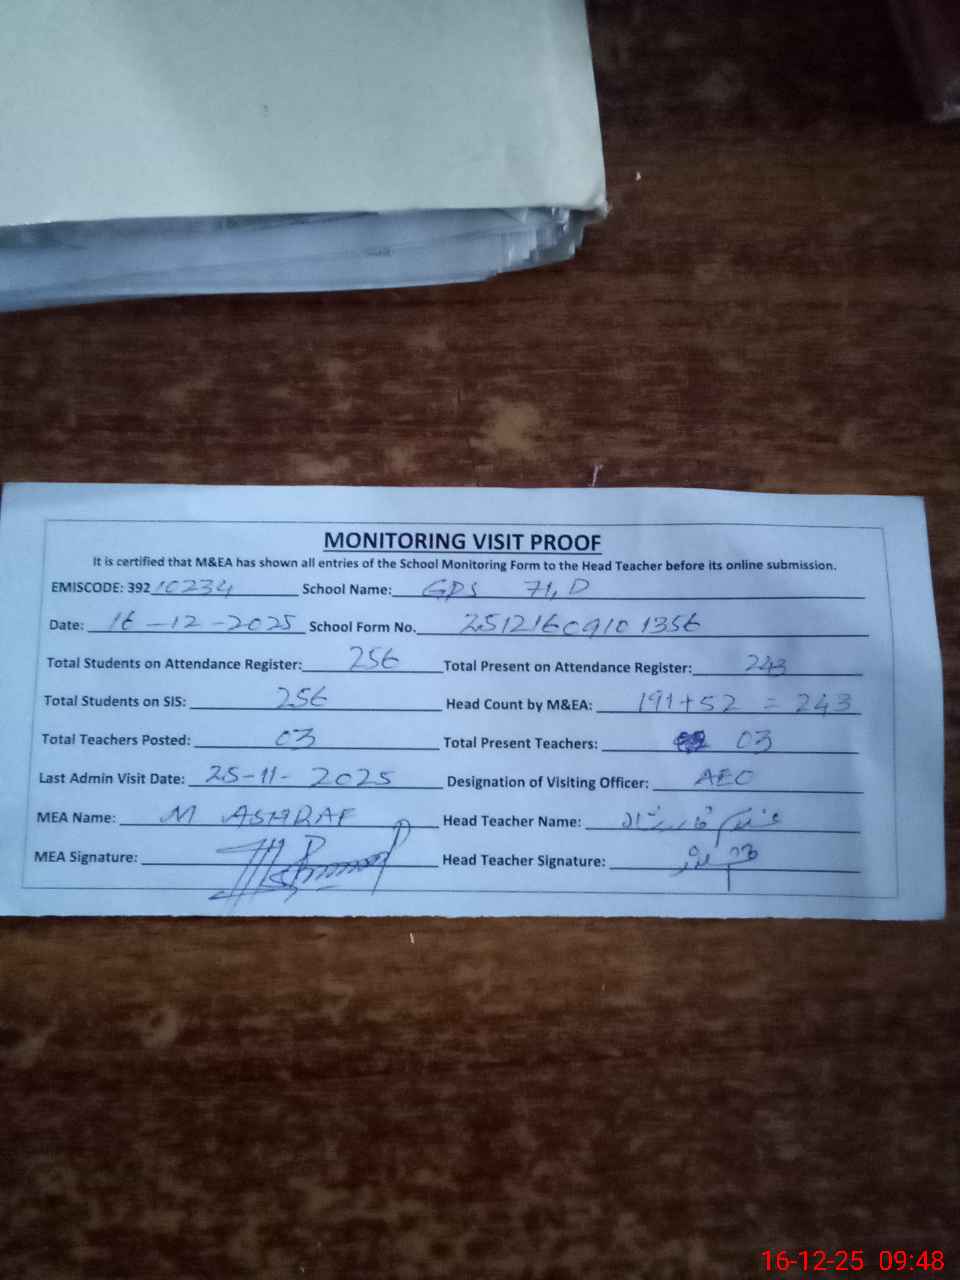 MONITORING VISIT PROOF
It is certified that M&EA has shown all entries of the School Monitoring Form to the Head Teacher before its online submission.
EMISCODE: 392 10234 School Name: GPS 71, D
Date: 16-12-2025 School Form No. 2512160910 1356
Total Students on Attendance Register: 256 Total Present on Attendance Register: 243
Total Students on SIS: 256 Head Count by M&EA: 191+52 = 243
Total Teachers Posted: 03 Total Present Teachers: 03
Last Admin Visit Date: 25-11-2025 Designation of Visiting Officer: AEO
MEA Name: M ASHRAF Head Teacher Name:
MEA Signature: Head Teacher Signature:
16-12-25 09:48